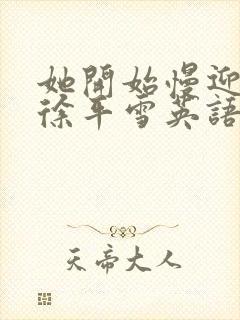 她開始慢迎
徐平雪英語
天帝大人